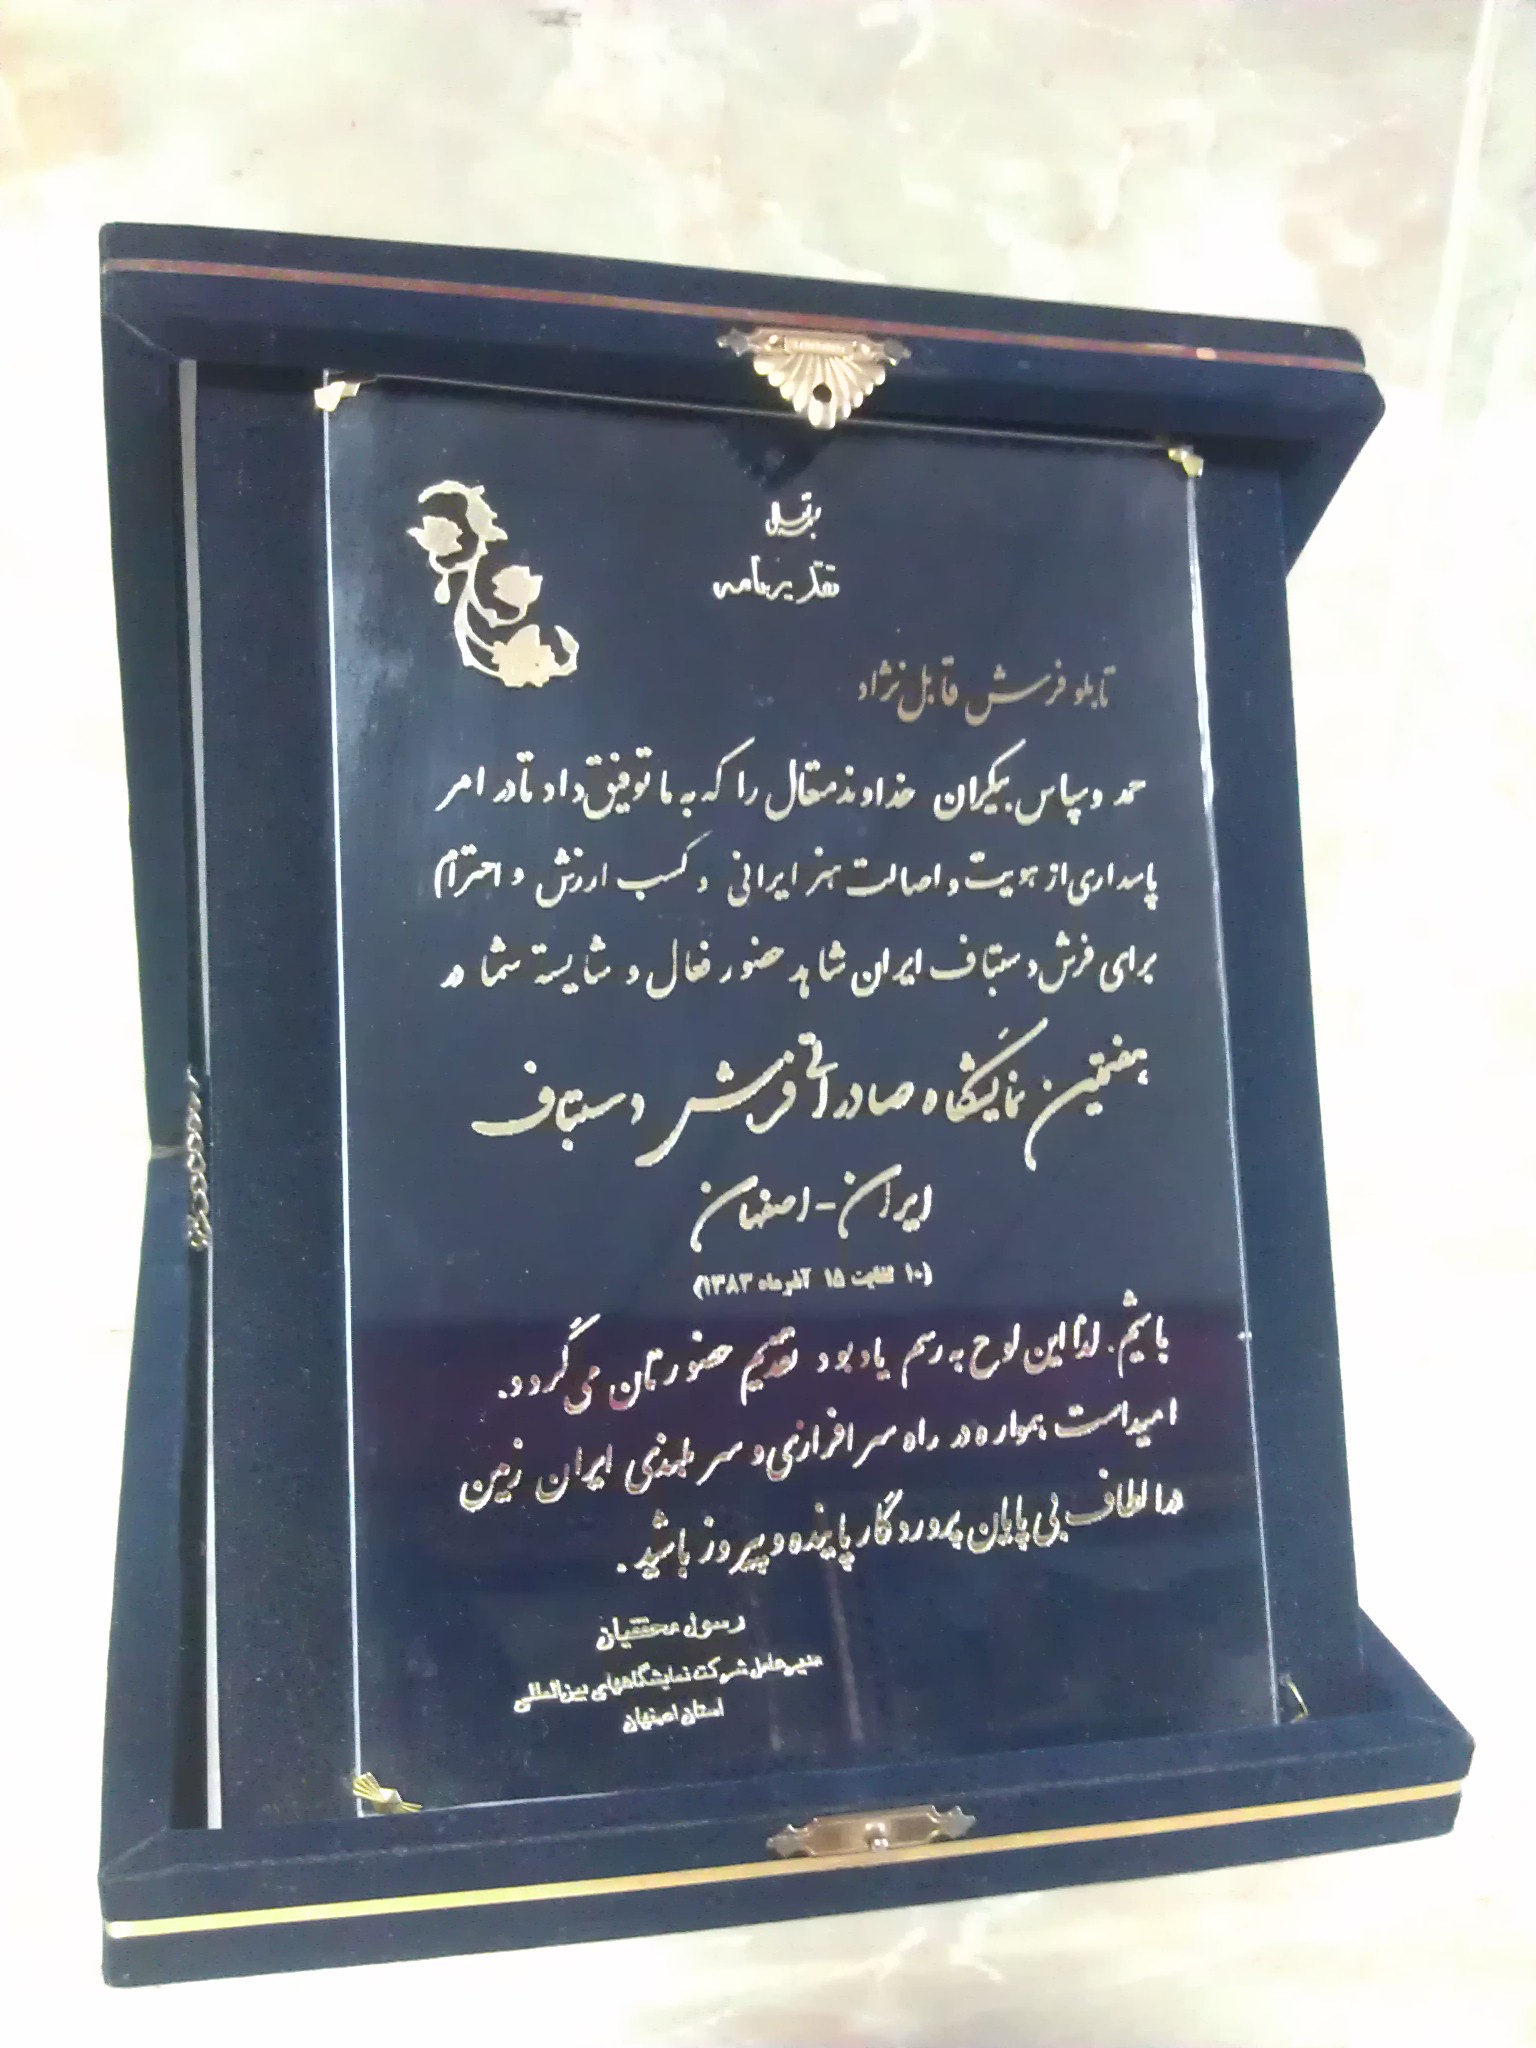 بسمه تعالی
تقدیرنامه
تابلو فرش قابل نژاد
حمد و سپاس بیکران خداوند متعال را که به ما توفیق داد تا در امر
پاسداری از هویت و اصالت هنر ایرانی و کسب ارزش و احترام
برای فرش دستباف ایران شاهد حضور فعال و شایسته شما در
هفتمین نمایشگاه صادراتی فرش دستباف
ایران - اصفهان
(۱۰ لغایت ۱۵ آذرماه ۱۳۸۳)
باشیم. لذا این لوح به رسم یادبود تقدیم حضورتان می گردد.
امید است همواره در راه سرافرازی و سربلندی ایران زمین
در الطاف بی پایان پروردگار پاینده و پیروز باشید.
رسول محققیان
مدیرعامل شرکت نمایشگاههای بین المللی
استان اصفهان